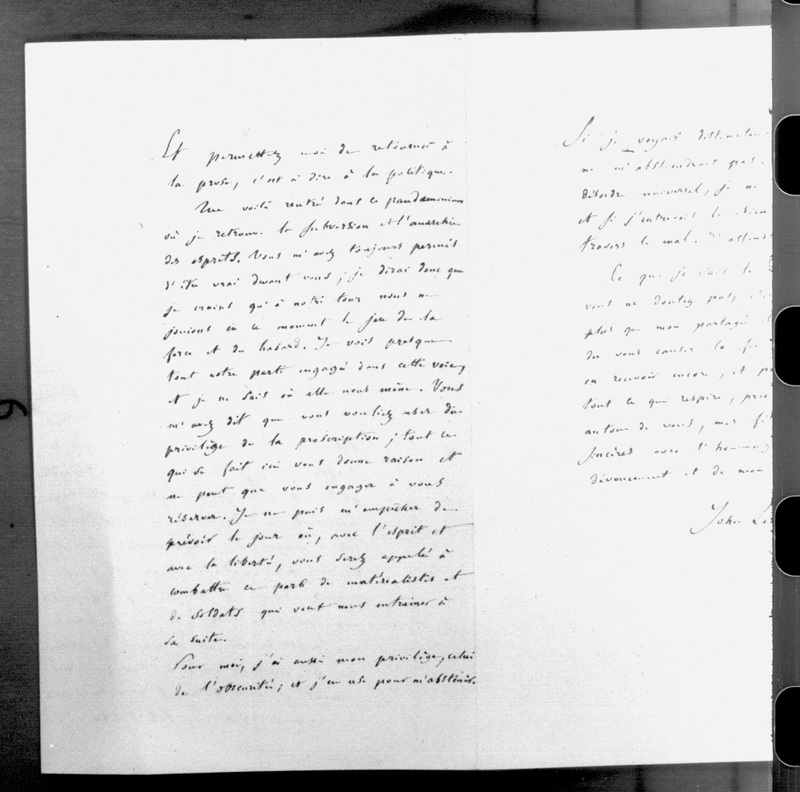 Et permettez moi de retourner à
la prose, c'est à dire à la politique.
Me voilà rentré dans ce pandæmonium
où je retrouve la subversion et l'anarchie
des esprits. Vous m'avez toujours permis
d'être vrai devant vous; je dirai donc que
je crains qu'à notre tour nous ne
jouions en ce moment le jeu de la
force et du hasard. Je vois presque
tout notre parti engagé dans cette voie,
et je ne sais où elle nous mène. Vous
m'avez dit que vous vouliez user du
privilège de la proscription; tout ce
qui se fait ici vous donne raison et
ne peut que vous engager à vous
réserver. Je ne puis m'empêcher de
prévoir le jour où, avec l'esprit et
avec la liberté, vous serez appelé à
combattre ce parti de matérialistes et
de soldats qui veut nous entraîner à
sa suite.
Pour moi, j'ai aussi mon privilège, celui
de l'obscurité; et j'en use pour m'abstenir.
Si je voyais
ne m'abstiendrais pas.
désordre universel, je ne
et si j'entrevois le bien
travers le mal, j'attends
Ce que je sais
vous ne doutez pas, c'
plus que mon partagé
de vous causer la
en recevoir encore, et
tout ce que respire,
autour de vous, mes
sincères avec l'hommage
dévouement et de mon
John